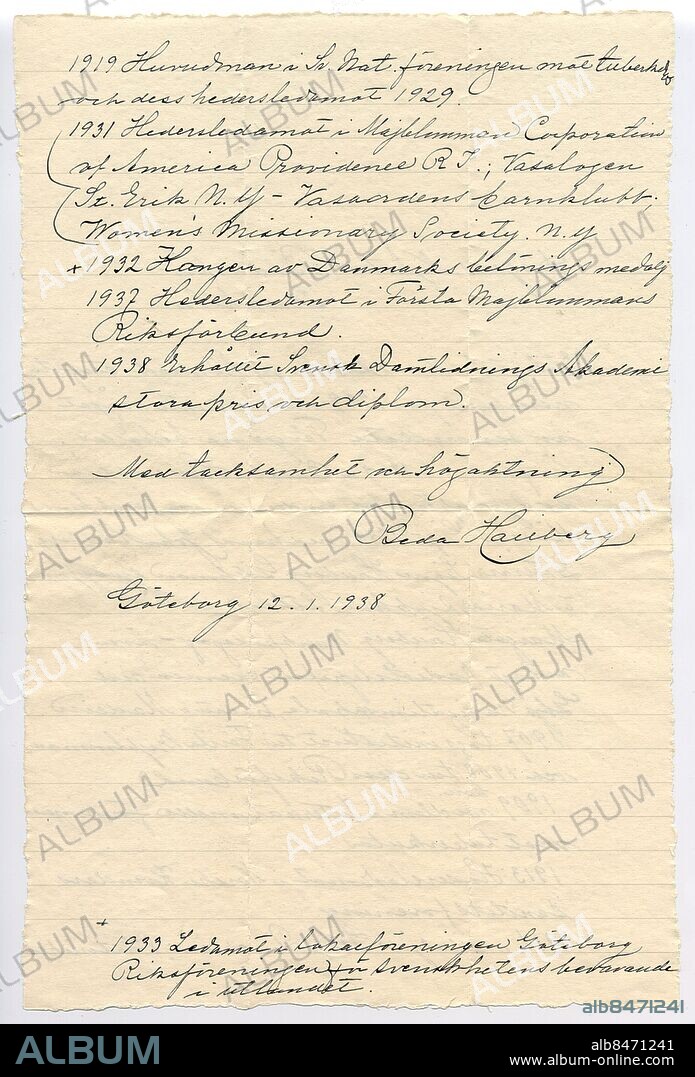 1919 Huvudman i Sv. Nat. föreningen mot tuberkulos
och dess hedersledamot 1929.
1931 Hedersledamot i Majblomman Corporation
of America Providence R I.; Vasalogen
St. Erik N. Y - Vasaordens barnklubb;
Women's Missionary Society. N. Y
+ 1932 Kongen av Danmarks belönings medalj
1937 Hedersledamot i Första Majblommans
Riksförbund.
1938 Erhållit Svensk Damtidnings Akademi
stora pris och diplom.
Med tacksamhet och högaktning
Beda Hallberg
Göteborg 12. 1. 1938
+
1933 Ledamot i lokalföreningen Göteborg
Riksföreningen för svenskhetens bevarande
i utlandet.
ALBUM
alb8471241
ALBUM
alb8471241
www.album-online.com